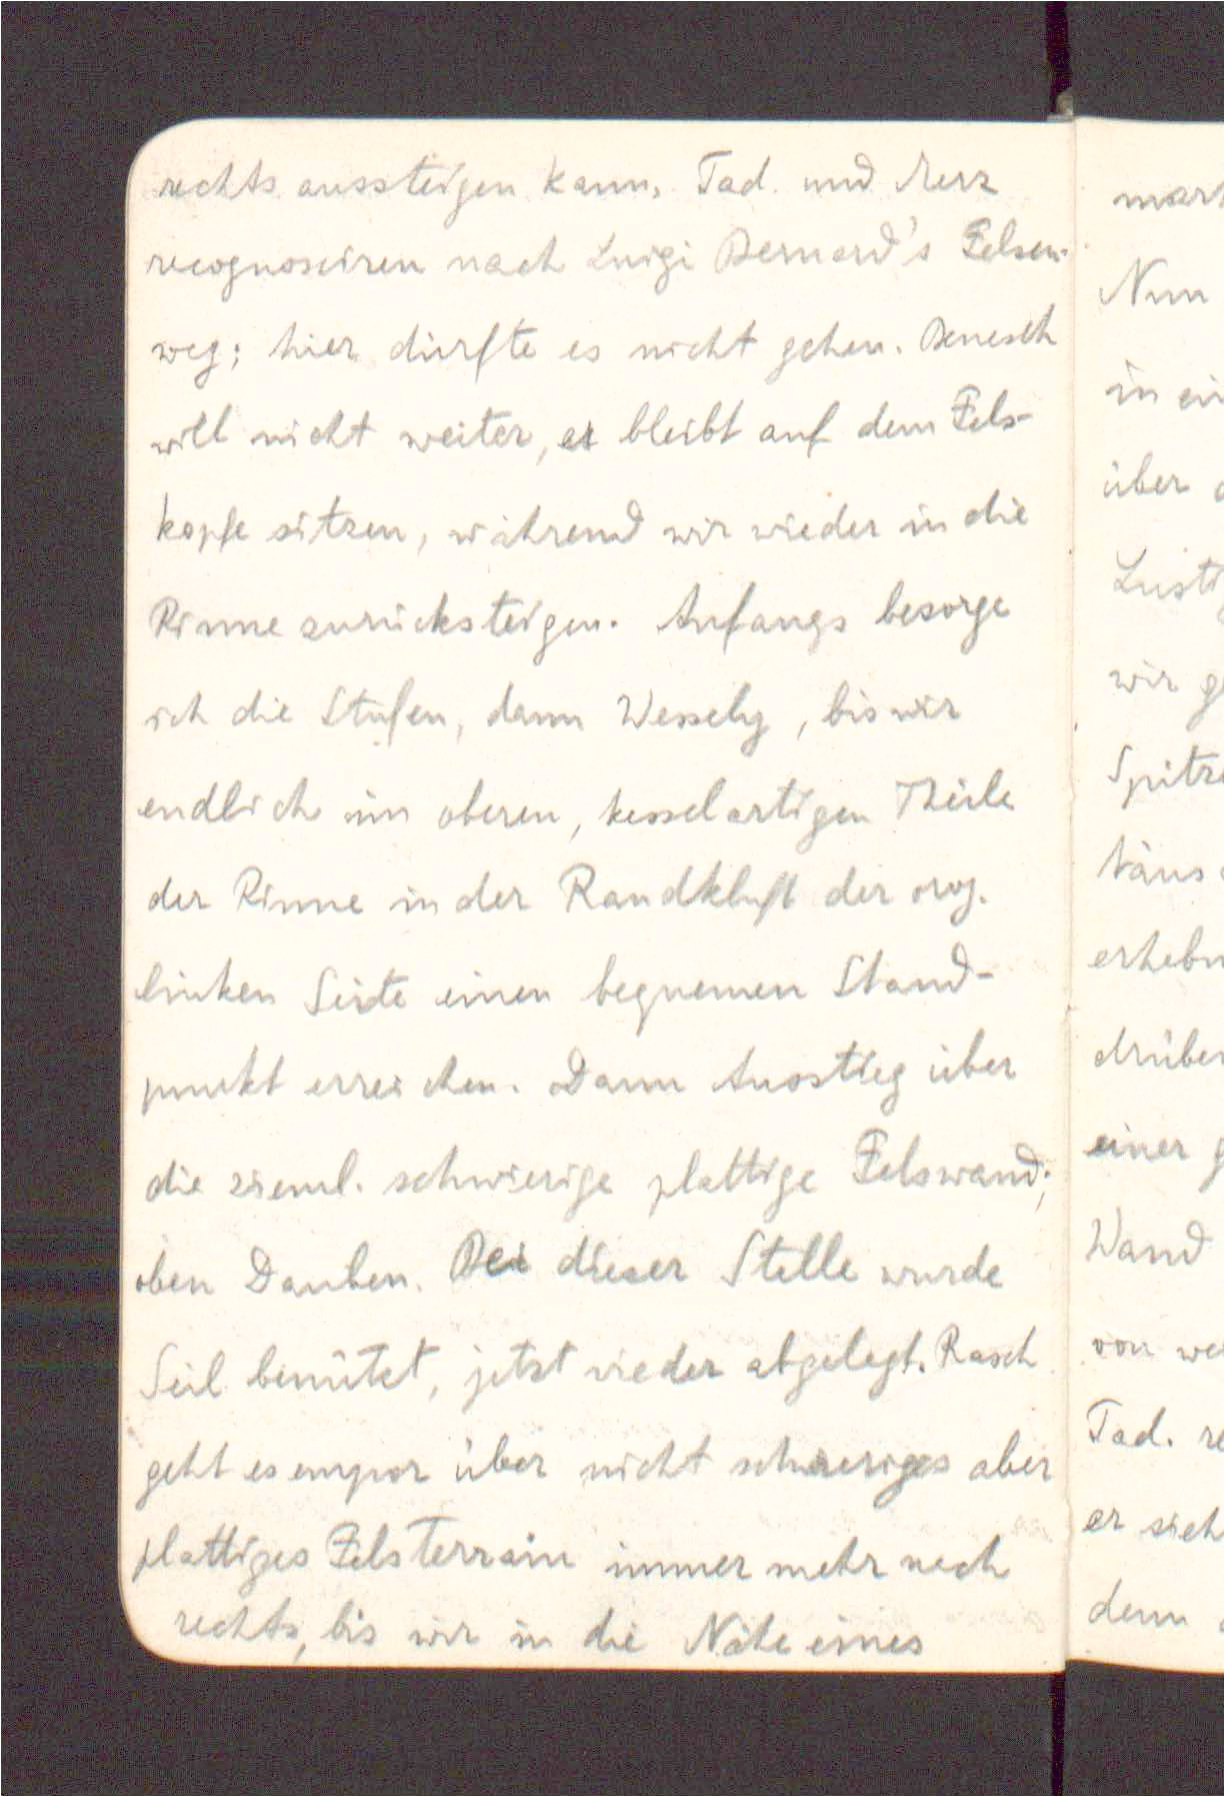 rechts aussteigen kann. Tad. und Merz
recognosciren nach Luigi Bernard's Felsen-
weg; hier dürfte es nicht gehen. Benesch
will nicht weiter, er bleibt auf dem Fels-
kopfe sitzen, während wir wieder in die
Rinne zurücksteigen. Anfangs besorge
ich die Stufen, dann Wessely, bis wir
endlich im oberen, kesselartigen Theile
der Rinne in der Randkluft der orog.
linken Seite einen bequemen Stand-
punkt erreichen. Dann Ausstieg über
die zieml. schwierige plattige Felswand;
oben Dauben. Bei dieser Stelle wurde
Seil benützt, jetzt wieder abgelegt. Rasch
geht es empor über nicht schwieriges aber
plattiges Felsterrain immer mehr nach
rechts, bis wir in die Nähe eines
Nun
über
wir
drüben
einer
Wand
von
Tad.
er
denn